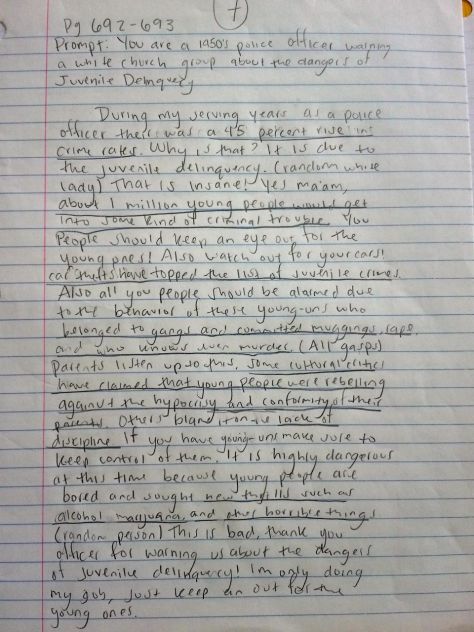 7
Pg 692-693
Prompt: You are a 1950's police officer warning
a white church group about the dangers of
Juvenile Delinquery
During my serving years as a police
officer there was a 45 percent rise in
crime rates. Why is that? It is due to
the juvenile delinquency. (random white
lady) That is insane! Yes ma'am,
about 1 million young people would get
into some kind of criminal trouble. You
People should keep an eye out for the
young ones! Also watch out for your cars!
car thefts have topped the list of juvenile crimes.
Also all you people should be alarmed due
to the behavior of these young-uns who
belonged to gangs and committed muggings, rape
and who knows even murder. (All gasps)
Parents listen up to this, some cultural critics
have claimed that young people were rebelling
against the hypocrisy and conformity of their
parents. Others blame it on the lack of
discipline. If you have young-uns make sure to
keep control of them. It is highly dangerous
at this time because young people are
bored and sought new thrills such as
alcohol marijuana, and other horrible things
(random person) This is bad, thank you
officer for warning us about the dangers
of juvenile delinquency! I'm only doing
my job, just keep an out for the
young ones.